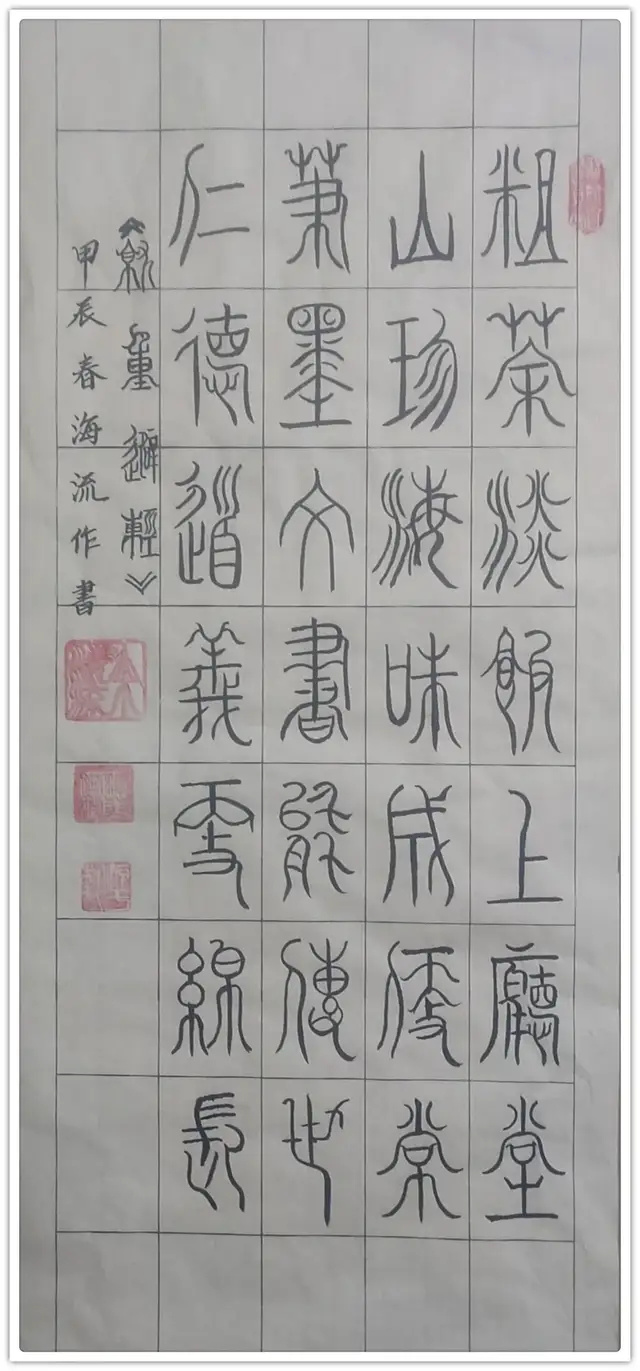 粗茶淡飯上廳堂
山珍海味成常
筆墨文書能傳世
仁德道義更綿長
《就重避輕》
甲辰春海流作書